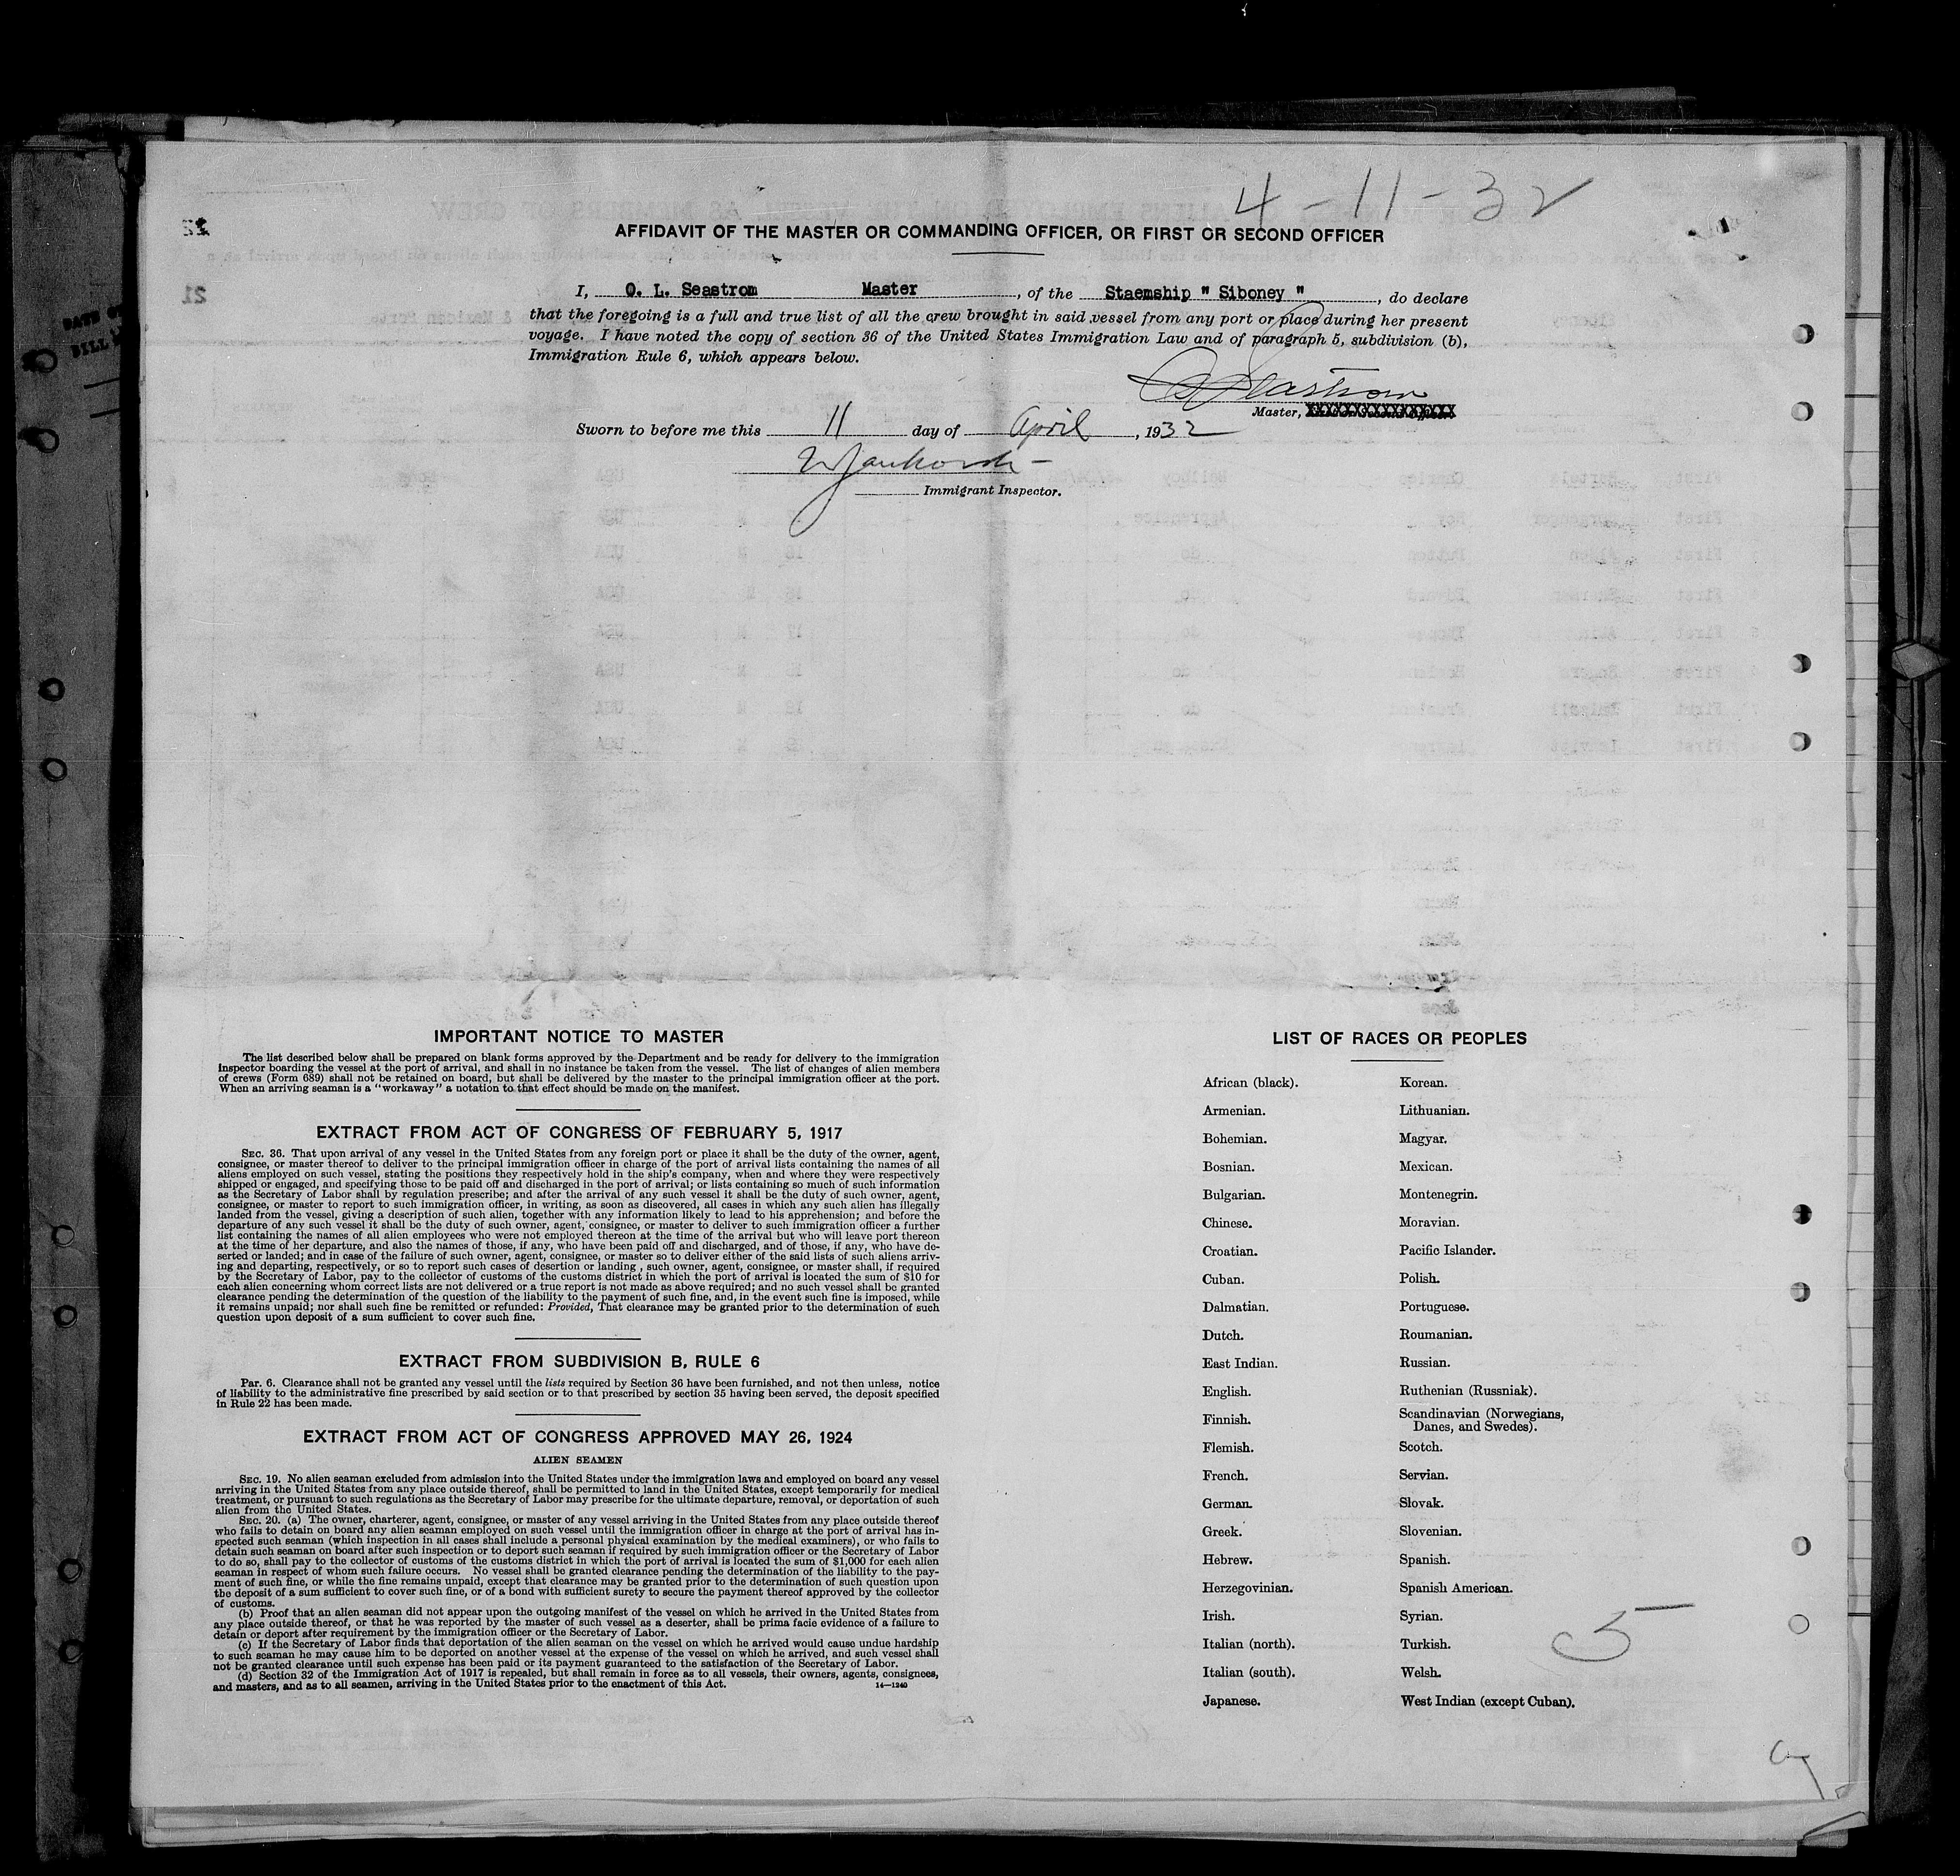 4-11-32
AFFIDAVIT OF THE MASTER OR COMMANDING OFFICER, OR FIRST OR SECOND OFFICER
I, O. L. Seastrom Master, of the Staemship " Siboney ", do declare
that the foregoing is a full and true list of all the crew brought in said vessel from any port or place during her present
voyage. I have noted the copy of section 36 of the United States Immigration Law and of paragraph 5, subdivision (b),
Immigration Rule 6, which appears below.
Master,
Sworn to before me this 11 day of April, 1932
Immigrant Inspector.
IMPORTANT NOTICE TO MASTER
The list described below shall be prepared on blank forms approved by the Department and be ready for delivery to the immigration
inspector boarding the vessel at the port of arrival, and shall in no instance be taken from the vessel. The list of changes of alien members
of crews (Form 689) shall not be retained on board, but shall be delivered by the master to the principal immigration officer at the port.
When an arriving seaman is a "workaway" a notation to that effect should be made on the manifest.
EXTRACT FROM ACT OF CONGRESS OF FEBRUARY 5, 1917
SEC. 36. That upon arrival of any vessel in the United States from any foreign port or place it shall be the duty of the owner, agent,
consignee, or master thereof to deliver to the principal immigration officer in charge of the port of arrival lists containing the names of all
aliens employed on such vessel, stating the positions they respectively hold in the ship's company, when and where they were respectively
shipped or engaged, and specifying those to be paid off and discharged in the port of arrival; or lists containing so much of such information
as the Secretary of Labor shall by regulation prescribe; and after the arrival of any such vessel it shall be the duty of such owner, agent,
consignee, or master to report to such immigration officer, in writing, as soon as discovered, all cases in which any such alien has illegally
landed from the vessel, giving a description of such alien, together with any information likely to lead to his apprehension; and before the
departure of any such vessel it shall be the duty of such owner, agent, consignee, or master to deliver to such immigration officer a further
list containing the names of all alien employees who were not employed thereon at the time of the arrival but who will leave port thereon
at the time of her departure, and also the names of those, if any, who have been paid off and discharged, and of those, if any, who have de-
serted or landed; and in case of the failure of such owner, agent, consignee, or master so to deliver either of the said lists of such aliens arriv-
ing and departing, respectively, or so to report such cases of desertion or landing , such owner, agent, consignee, or master shall, if required
by the Secretary of Labor, pay to the collector of customs of the customs district in which the port of arrival is located the sum of $10 for
each alien concerning whom correct lists are not delivered or a true report is not made as above required; and no such vessel shall be granted
clearance pending the determination of the question of the liability to the payment of such fine, and, in the event such fine is imposed, while
it remains unpaid; nor shall such fine be remitted or refunded: Provided, That clearance may be granted prior to the determination of such
question upon deposit of a sum sufficient to cover such fine.
EXTRACT FROM SUBDIVISION B, RULE 6
Par. 6. Clearance shall not be granted any vessel until the lists required by Section 36 have been furnished, and not then unless, notice
of liability to the administrative fine prescribed by said section or to that prescribed by section 35 having been served, the deposit specified
in Rule 22 has been made.
EXTRACT FROM ACT OF CONGRESS APPROVED MAY 26, 1924
ALIEN SEAMEN
SEC. 19. No alien seaman excluded from admission into the United States under the immigration laws and employed on board any vessel
arriving in the United States from any place outside thereof, shall be permitted to land in the United States, except temporarily for medical
treatment, or pursuant to such regulations as the Secretary of Labor may prescribe for the ultimate departure, removal, or deportation of such
alien from the United States.
SEC. 20. (a) The owner, charterer, agent, consignee, or master of any vessel arriving in the United States from any place outside thereof
who fails to detain on board any alien seaman employed on such vessel until the immigration officer in charge at the port of arrival has in-
spected such seaman (which inspection in all cases shall include a personal physical examination by the medical examiners), or who fails to
detain such seaman on board after such inspection or to deport such seaman if required by such immigration officer or the Secretary of Labor
to do so, shall pay to the collector of customs of the customs district in which the port of arrival is located the sum of $1,000 for each alien
seaman in respect of whom such failure occurs. No vessel shall be granted clearance pending the determination of the liability to the pay-
ment of such fine, or while the fine remains unpaid, except that clearance may be granted prior to the determination of such question upon
the deposit of a sum sufficient to cover such fine, or of a bond with sufficient surety to secure the payment thereof approved by the collector
of customs.
(b) Proof that an alien seaman did not appear upon the outgoing manifest of the vessel on which he arrived in the United States from
any place outside thereof, or that he was reported by the master of such vessel as a deserter, shall be prima facie evidence of a failure to
detain or deport after requirement by the immigration officer or the Secretary of Labor.
(c) If the Secretary of Labor finds that deportation of the alien seaman on the vessel on which he arrived would cause undue hardship
to such seaman he may cause him to be deported on another vessel at the expense of the vessel on which he arrived, and such vessel shall
not be granted clearance until such expense has been paid or its payment guaranteed to the satisfaction of the Secretary of Labor.
(d) Section 32 of the Immigration Act of 1917 is repealed, but shall remain in force as to all vessels, their owners, agents, consignees,
and masters, and as to all seamen, arriving in the United States prior to the enactment of this Act. 14—1240
LIST OF RACES OR PEOPLES
African (black).
Armenian.
Bohemian.
Bosnian.
Bulgarian.
Chinese.
Croatian.
Cuban.
Dalmatian.
Dutch.
East Indian.
English.
Finnish.
Flemish.
French.
German.
Greek.
Hebrew.
Herzegovinian.
Irish.
Italian (north).
Italian (south).
Japanese.
Korean.
Lithuanian.
Magyar.
Mexican.
Montenegrin.
Moravian.
Pacific Islander.
Polish.
Portuguese.
Roumanian.
Russian.
Ruthenian (Russniak).
Scandinavian (Norwegians,
Danes, and Swedes).
Scotch.
Servian.
Slovak.
Slovenian.
Spanish.
Spanish American.
Syrian.
Turkish.
Welsh.
West Indian (except Cuban).
5